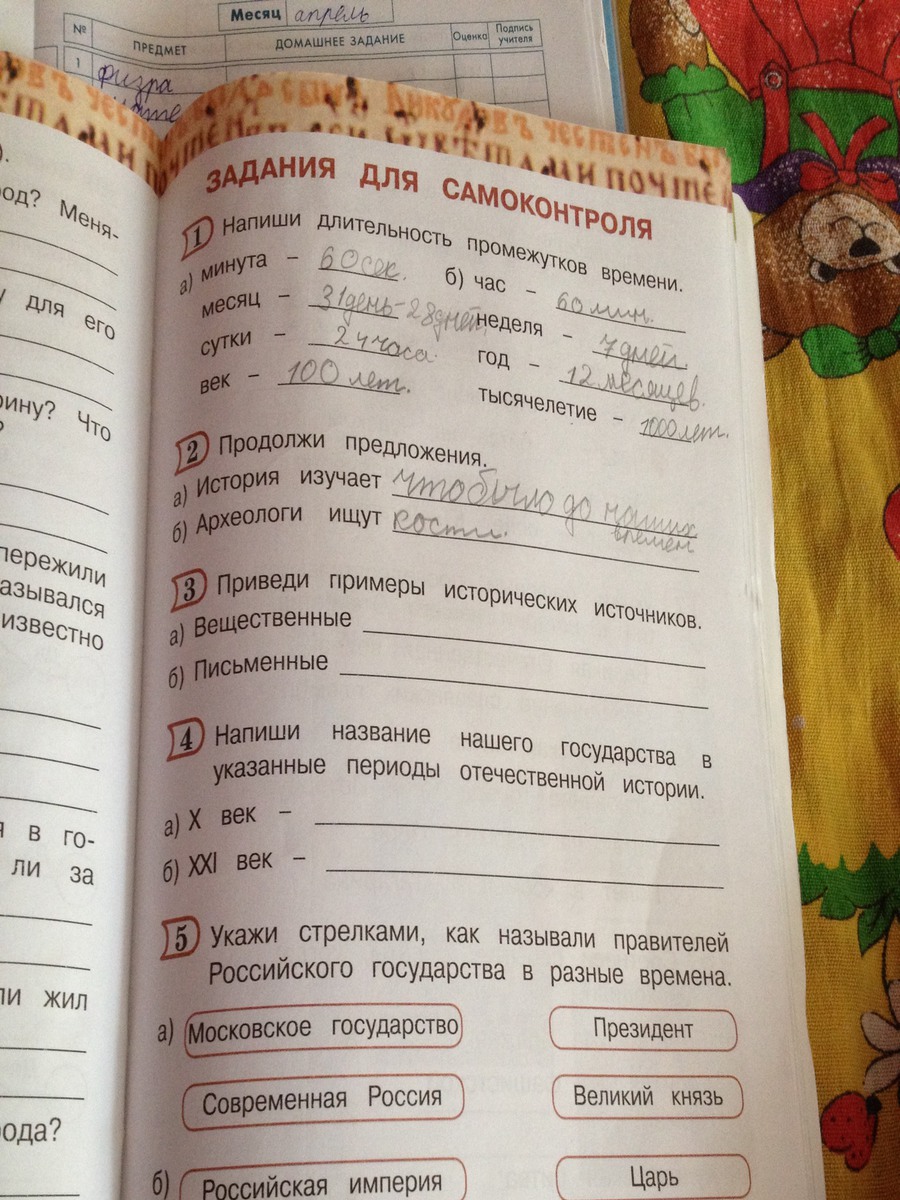 Месяц апрель
№ ПРЕДМЕТ ДОМАШНЕЕ ЗАДАНИЕ Оценка Подпись учителя
1 физра
).
од? Меня-
у для его
рину? Что
?
пережили
азывался
известно
я в го-
ли за
ли жил
ода?
ЗАДАНИЯ ДЛЯ САМОКОНТРОЛЯ
1 Напиши длительность промежутков времени.
а) минута – 60 сек. б) час – 60 мин.
месяц – 31 день-28 дней, неделя – 7 дней.
сутки – 24 часа. год – 12 месяцев.
век – 100 лет. тысячелетие – 1000 лет.
2 Продолжи предложения.
а) История изучает что было до наших
времен
б) Археологи ищут кости.
3 Приведи примеры исторических источников.
а) Вещественные
б) Письменные
4 Напиши название нашего государства в
указанные периоды отечественной истории.
а) X век –
б) XXI век –
5 Укажи стрелками, как называли правителей
Российского государства в разные времена.
а) Московское государство Президент
Современная Россия Великий князь
б) Российская империя Царь